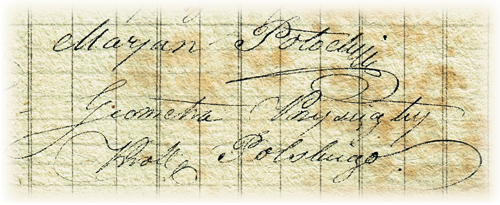 Maryan Potocki
Geometra Przysięgły
Król. Polskiego